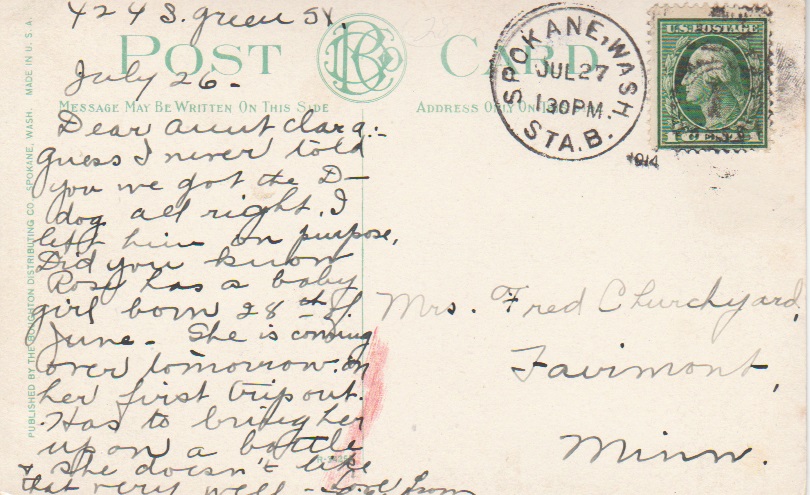 424 S. Green St.
POST CARD
July 26 -
MESSAGE MAY BE WRITTEN ON THIS SIDE
ADDRESS ONLY ON
Dear aunt Clara :-
Guess I never told
you we got the D—
dog all right. I
left him on purpose.
Did you know
Rose has a baby
girl born 28th of
June - She is coming
over tomorrow on
her first trip out.
Has to bring her
up on a bottle
& she doesn't like
that very well - Love from
PUBLISHED BY THE BOUGHTON DISTRIBUTING CO. SPOKANE, WASH. MADE IN U.S.A.
SPOKANE, WASH.
JUL 27
130 PM
STA. B.
1914
U.S. POSTAGE
1 CENT 1
Mrs. Fred Churchyard,
Fairmont,
Minn.